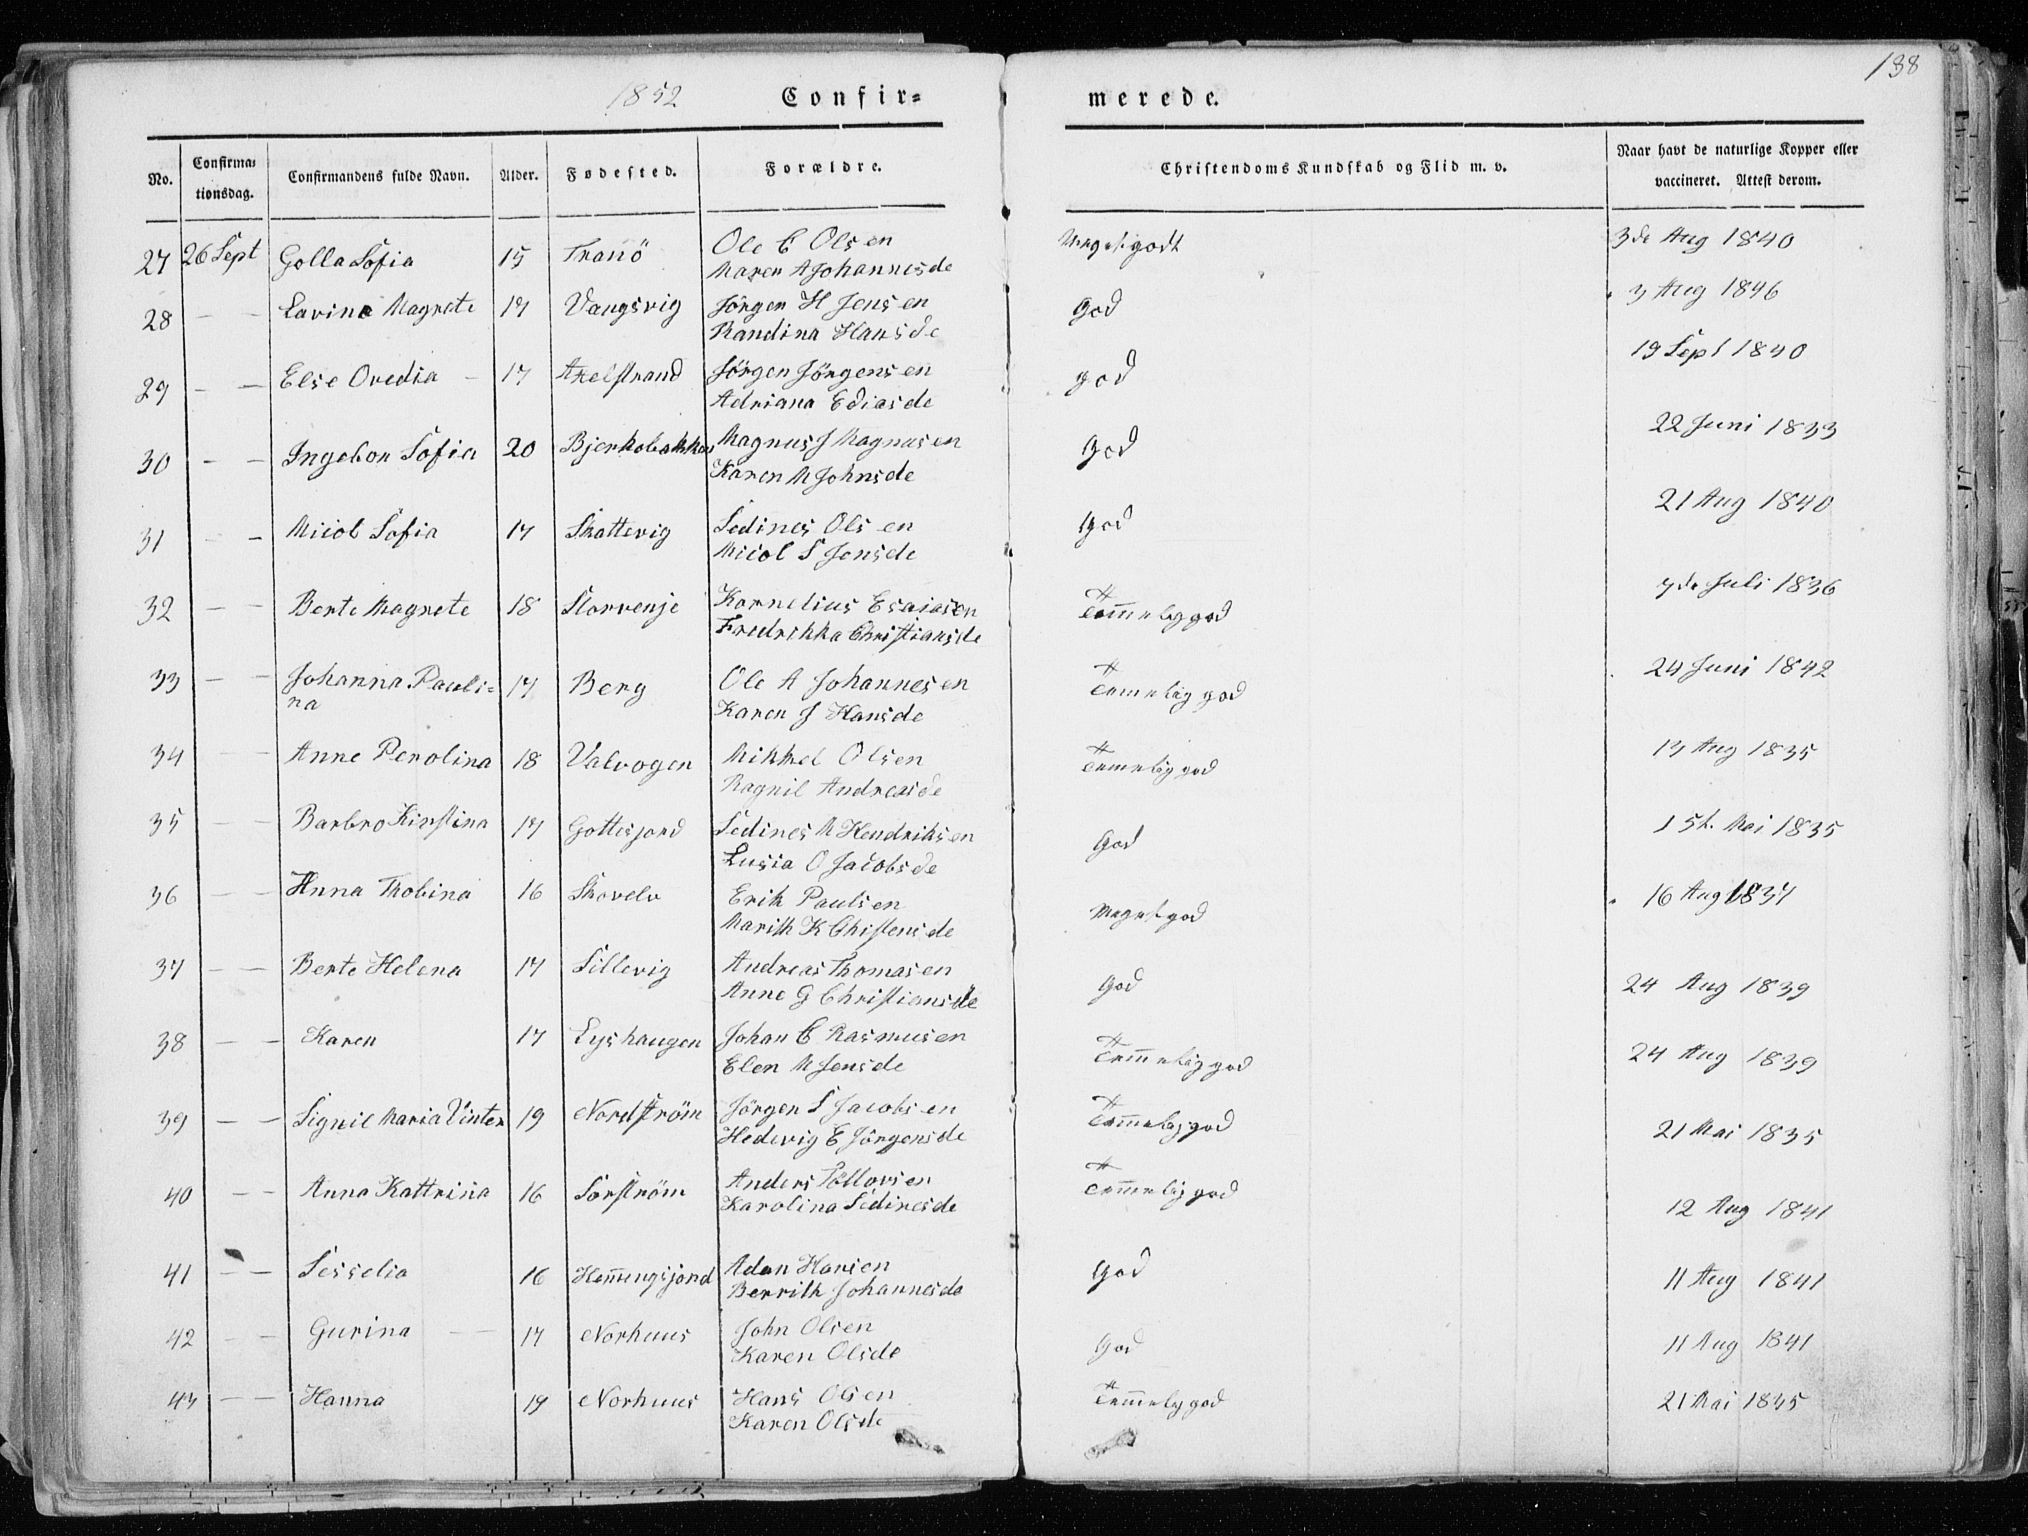 138
1852 Confir= merede.
No. Confirma= tionsdag. Confirmandens fulde Navn. Alder. Fødested. Forældre. Christendoms Kundskab og Flid m. v. Naar havt de naturlige Kopper eller vaccineret. Attest derom.
27 26 Sept Golla Sofia 15 Tranö Ole C Olsen Meget godt 3de Aug 1840
Maren A Johannesde
28 — — Lavina Magrete 17 Vangsvig Jörgen H Jensen God 3 Aug 1846
Randina Hansde
29 — — Else Ovedia 17 Axelstrand Jörgen Jörgensen god 19 Sept 1840
Adriana Ediasde
30 — — Ingebor Sofia 20 Bjerkebakken Magnus J Magnusen God 22 Juni 1833
Karen M Johnsde
31 — — Micol Sofia 17 Skattevig Sedines Olsen God 21 Aug 1840
Micol S Jensde
32 — — Berte Magrete 18 Storvenje Kornelius Esaiasen Temmelig god 7de Juli 1836
Fredrikka Christiansde
33 — — Johanna Pauli= 17 Berg Ole A Johannesen Temelig god 24 Juni 1842
na Karen J Hansde
34 — — Anne Perolina 18 Valvogen Mikkel Olsen Temelig god 17 Aug 1835
Ragnil Andreasde
35 — — Barbro Kirstina 17 Gottesjord Sedines M Hendriksen God 15t. Mai 1835
Lusia O Jacobsde
36 — — Anna Thobina 16 Skovelv Erik Paulsen Meget god 16 Aug 1837
Marith K Chistensde
37 — — Berte Helena 17 Sillevig Andreas Thomasen God 24 Aug 1839
Anne G Christiansde
38 — — Karen 17 Lyshaugen Johan C Rasmusen Temmelig god 24 Aug 1839
Elen M Jensde
39 — — Signil Maria Vinter 19 Nordström Jörgen S Jacobsen Temmelig god 21 Mai 1835
Hedevig E Jörgensde
40 — — Anna Kattrina 16 Sörström Anders Tollovsen Temmelig god 12 Aug 1841
Karolina Sedinesde
41 — — Sesselia 16 Hemmingsjord Adan Hansen God 11 Aug 1841
Berrith Johannesde
42 — — Gurina 17 Norhuus John Olsen God 11 Aug 1841
Karen Olsde
43 — — Hanna 19 Norhuus Hans Olsen Temmelig god 21 Mai 1835
Karen Olsde